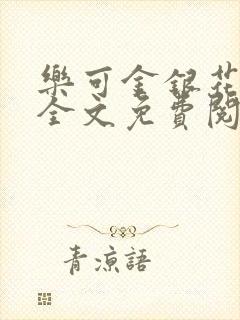 樂可金銀花
全文免費閱
青涼語